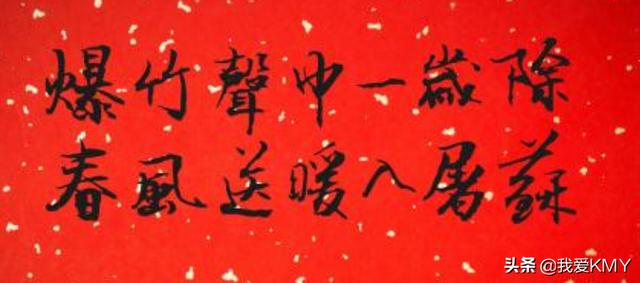 爆竹聲中一歲除
春風送暖入屠蘇
头条 @我爱KMY